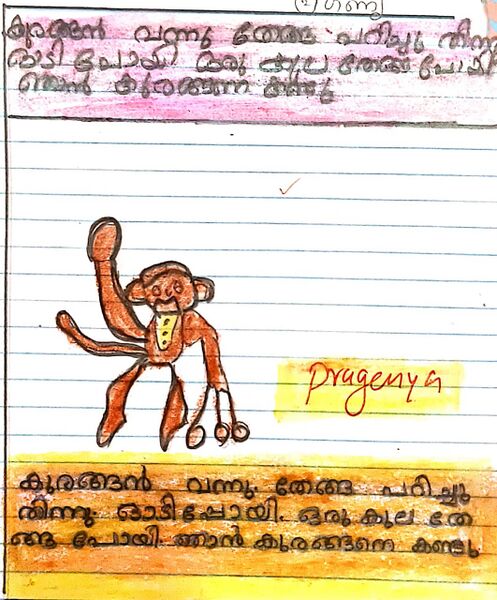 കുരങ്ങൻ വന്നു തേങ്ങ പറിച്ചു തിന്നു
ഓടി പോയി ഒരു കുല തേങ്ങ പോയി
ഞാൻ കുരങ്ങനെ കണ്ടു
pragenya
കുരങ്ങൻ വന്നു. തേങ്ങ പറിച്ചു
തിന്നു. ഓടിപ്പോയി. ഒരു കുല തേ
ങ്ങ പോയി. ഞാൻ കുരങ്ങനെ കണ്ടു.